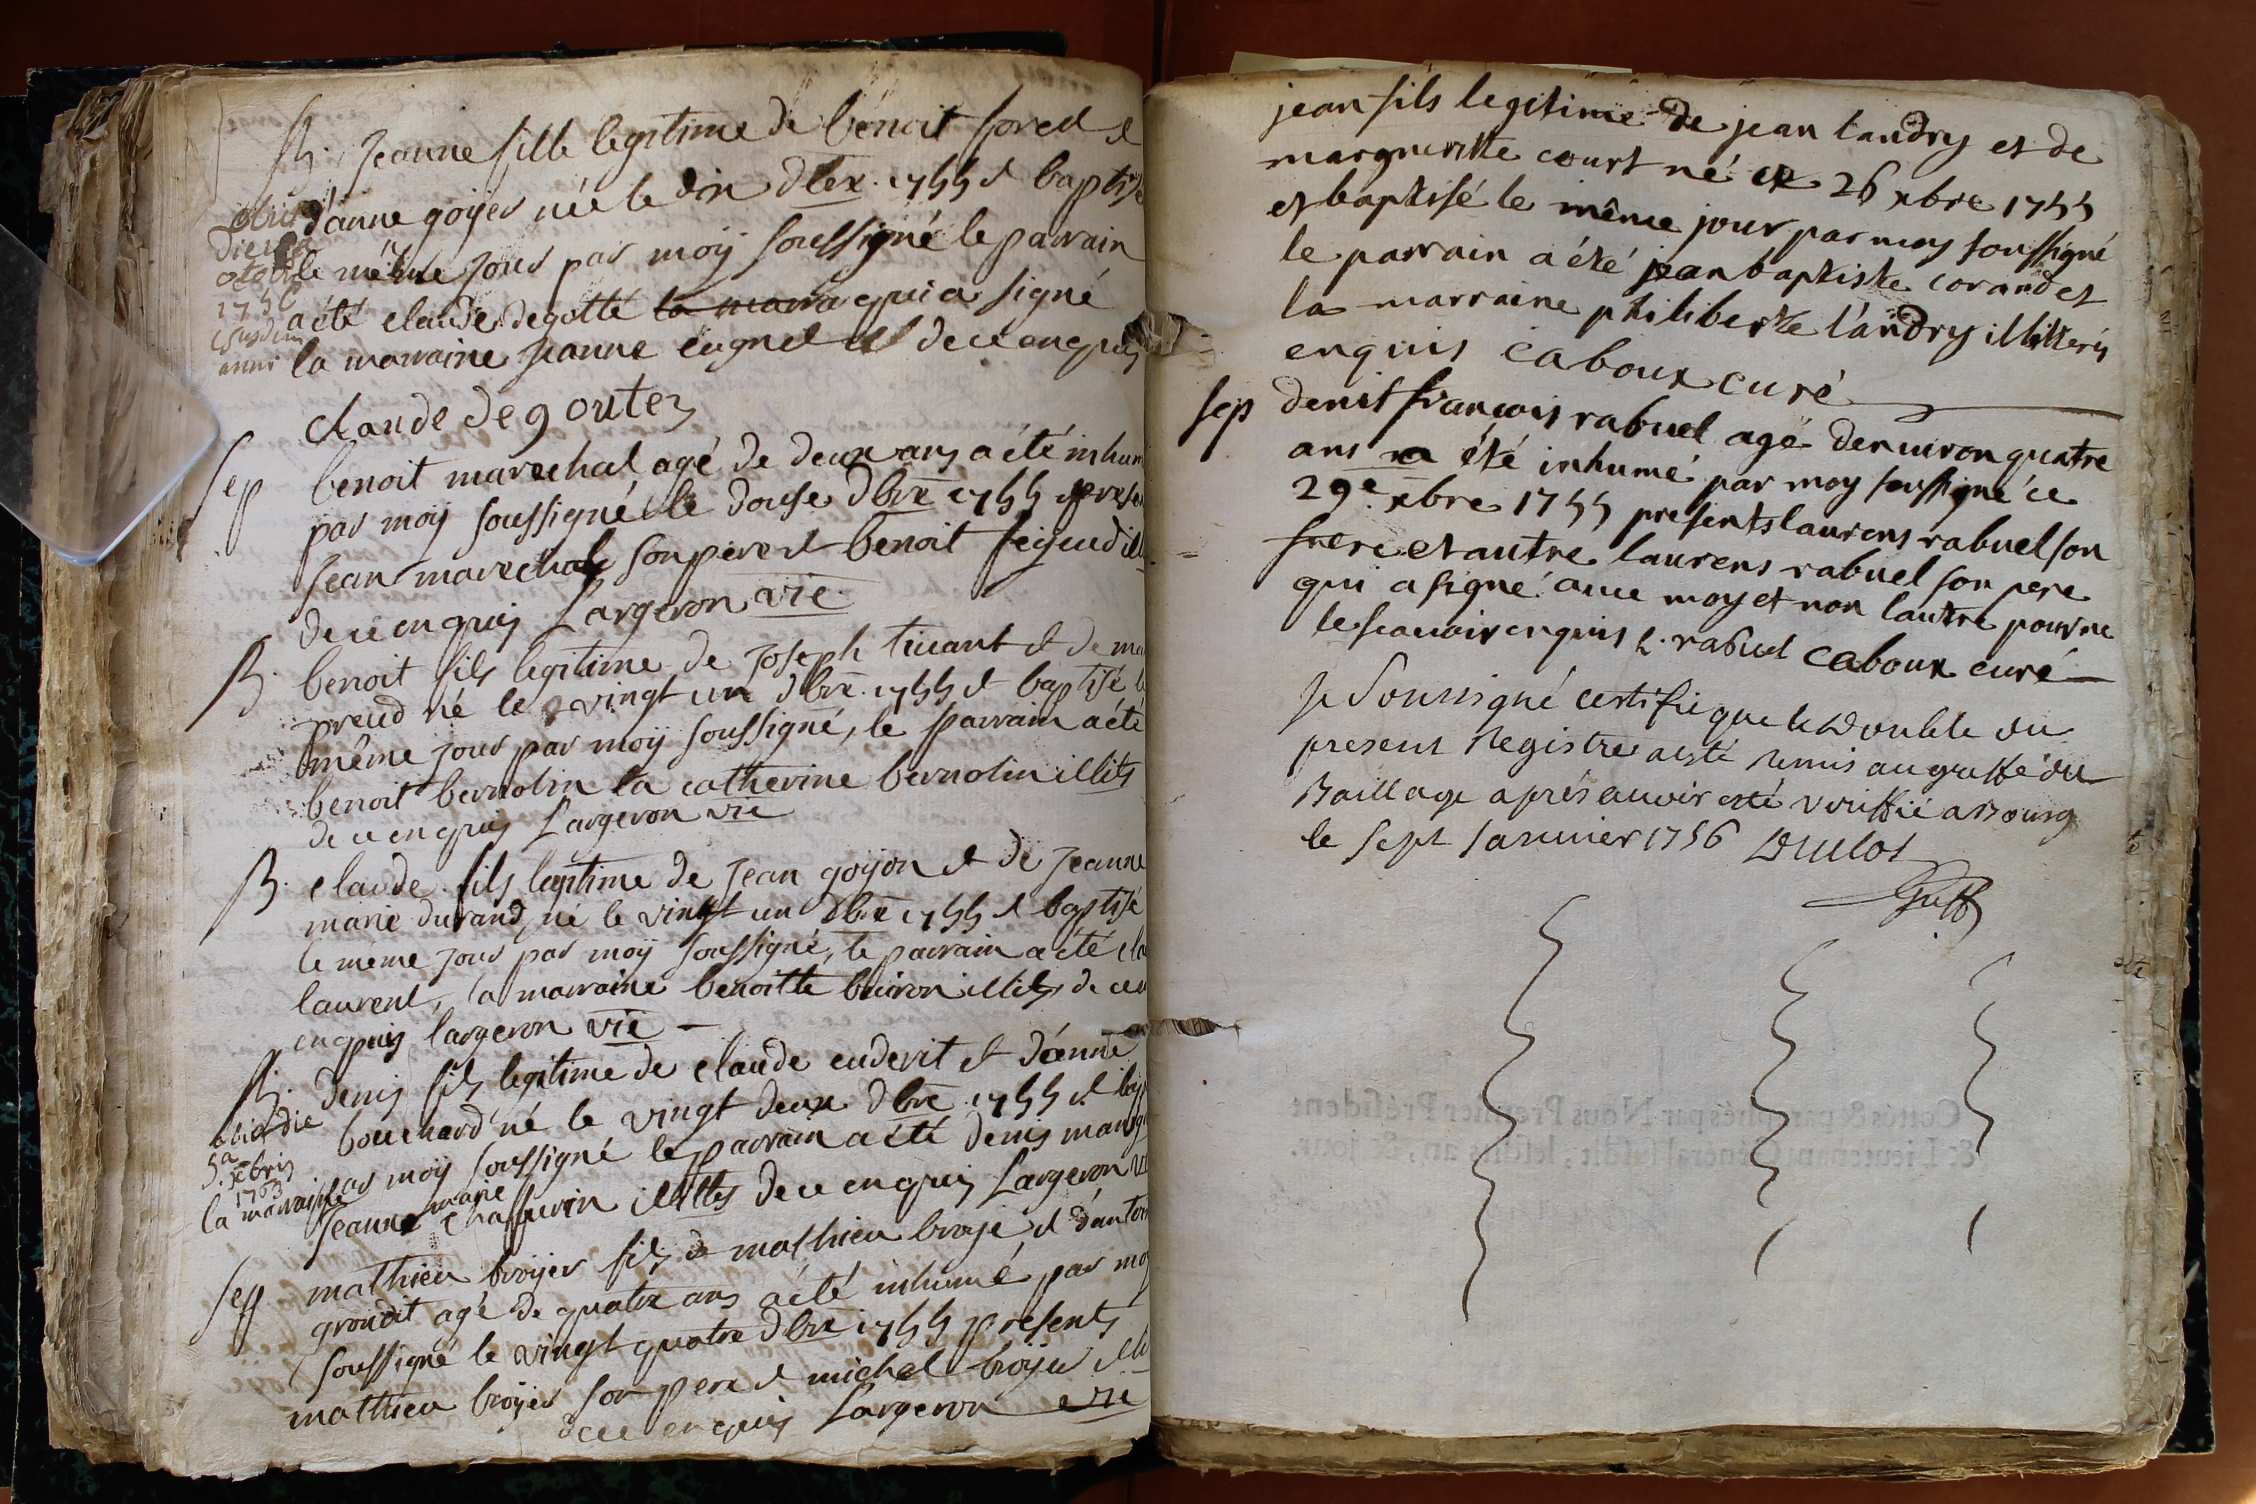 B. jeanne fille legitime de benoit forest et
d'anne goyer née le dix Xbre. 1755 et baptisée
le même jour par moy soussigné le parrain
a été claude degotte la marra qui a signé
la marraine jeanne cugnet de ce enquis
obiit
die
octobr
1756
ejusdem
anni
claude degoutez
sep benoit marechal agé de deux ans a été inhum
par moy soussigné le douse Xbre 1755 presen
jean marechal son pere et benoit
de ce enquis Largeron vic
B. benoit fils legitime de joseph tivant et de ma
preud né le vingt un Xbre. 1755 et baptisé l
même jour par moy soussigné, le parrain a été
benoit bernolin la catherine bernolin illits
de ce enquis Largeron vic
B. claude fils legitime de jean goyon et de jeanne
marie durand, né le vingt un Xbre 1755 et baptisé
le meme jour par moy soussigné, le parrain a été cla
laurent, la marraine benoitte buiron illits de ce
enquis largeron vic
B. denis fils legitime de claude cuderit et d'anne
bouchard né le vingt deux Xbre. 1755 et bap
par moy soussigné le parrain a été denis mang
la marraine jeanne marie chaffurin illittes de ce enquis Largeron vi
obiit die
5a. Xbris
1763
sep mathieu broyer fils de mathieu broye, et d'antoi
groudit agé de quatre ans a été inhumé par moy
soussigné le vingt quatre Xbre 1755 presents
mathieu broyer son pere et michel broyer illi
de ce enquis Largeron vic
jean fils legitime de jean landry et de
margueritte court né ce 26 xbre 1755
et baptisé le même jour par moy soussigné
le parrain a été jean baptiste corand et
la marraine philiberte landry illitteris
enquis caboux curé
sep denis françois rabuel agé denviron quatre
ans a été inhumé par moy soussigné ce
29e. xbre 1755 presents laurens rabuel son
frere et autre laurens rabuel son pere
qui a signé avec moy et non lautre pour ne
le scavoir enquis l. rabuel caboux curé
Je Soussigné certifie que le Double du
present Registre a esté remis au greffe du
Baillage aprés avoir esté veriffié a Bourg
le sept Janvier 1756 Duclos
Greff
Cottés & paraphés par Nous Premier Président
& Lieutenant Général susdit, lesdits an, & jour.